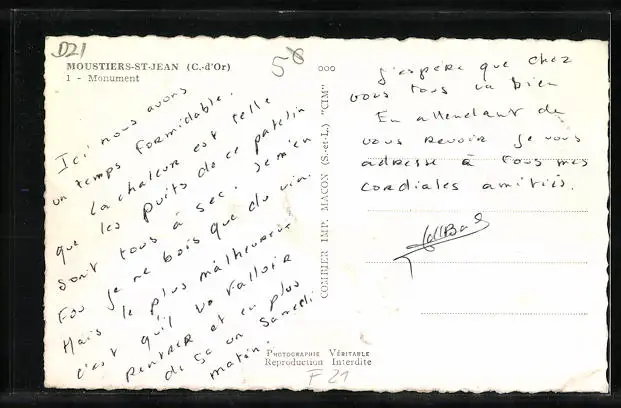 D21
MOUSTIERS-ST-JEAN (C.-d'Or)
1 - Monument
58
Ici nous avons
un temps formidable.
La chaleur est telle
que les puits de ce patelin
sont tous à sec. Je m'en
fou je ne bois que du vin.
Mais le plus malheureux
c'est qu'il va falloir
rentrer et en plus
de ça un samedi
matin.
COMBIER IMP. MACON (S.-et-L.) "CIM"
J'espère que chez
vous tous va bien
En attendant de
vous revoir je vous
adresse à tous mes
cordiales amitiés.
PHOTOGRAPHIE VÉRITABLE
Reproduction Interdite
F 21